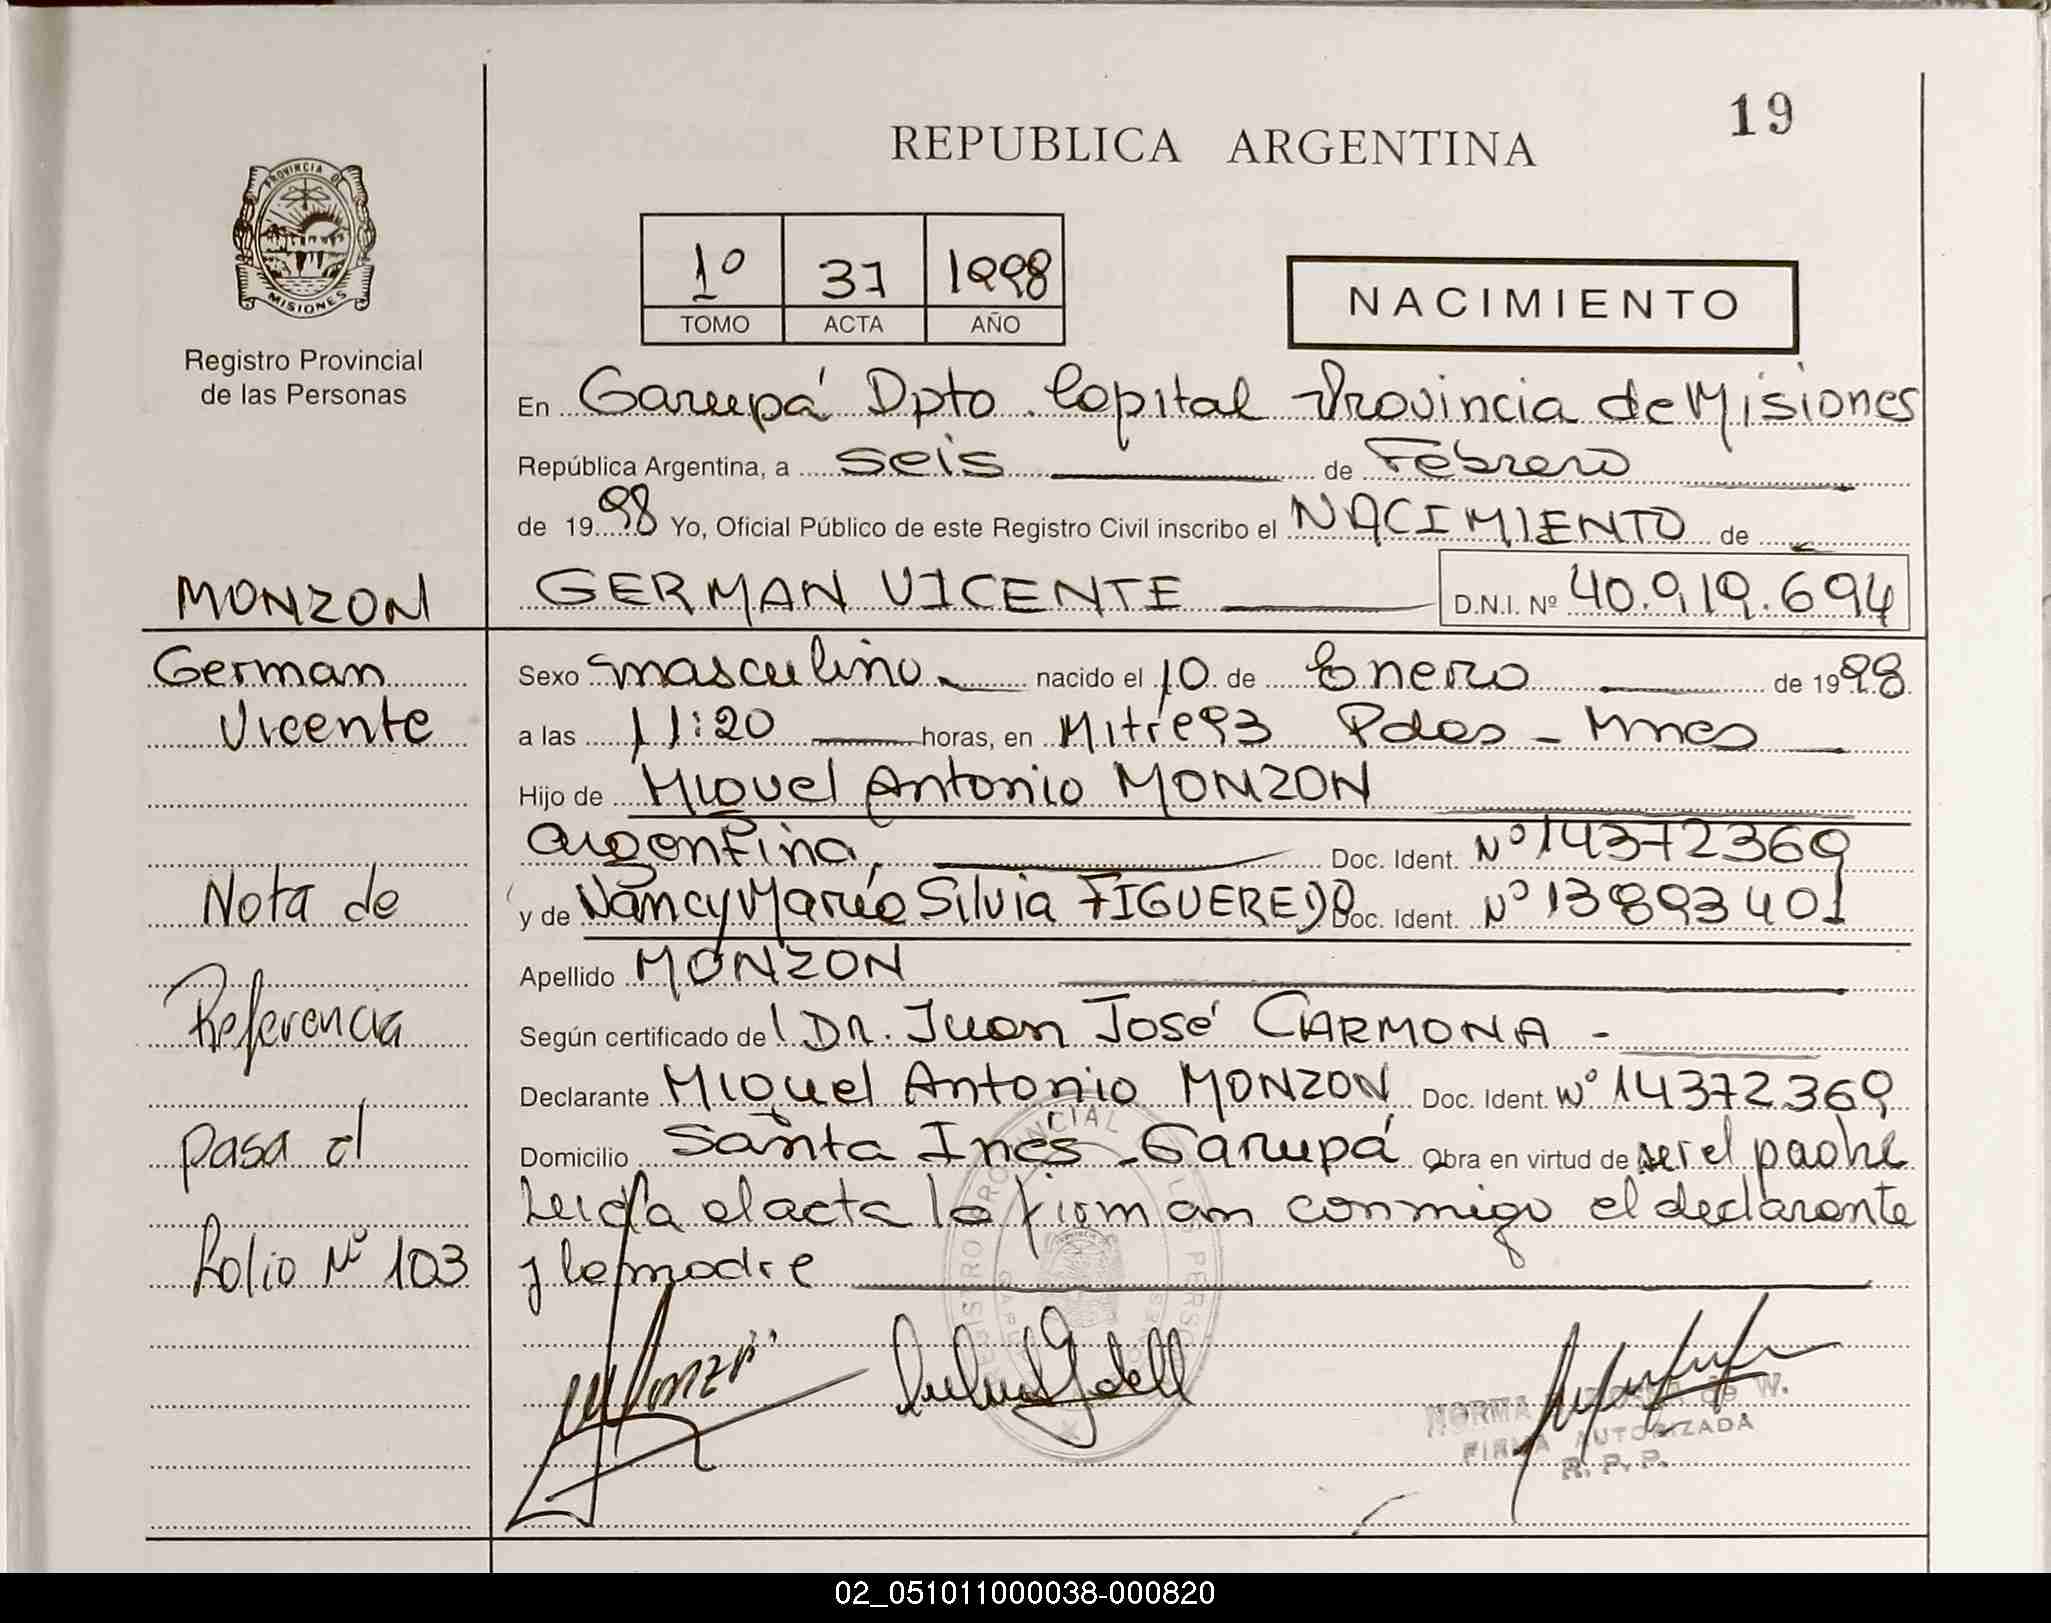 19
REPUBLICA ARGENTINA
PROVINCIA DE
MISIONES
Registro Provincial
de las Personas
1º 37 1998
TOMO ACTA AÑO
NACIMIENTO
En Garupá Dpto Capital Provincia de Misiones
República Argentina, a seis de Febrero
de 1998 Yo, Oficial Público de este Registro Civil inscribo el NACIMIENTO de
MONZON
GERMAN VICENTE D.N.I. Nº 40.919.694
German
Vicente
Sexo masculino nacido el 10 de Enero de 1998
a las 11:20 horas, en Mitre 93 Pdas - Mnes
Hijo de Miguel Antonio MONZON
argentina, Doc. Ident. Nº 14372369
y de Nancy María Silvia FIGUEREDO Doc. Ident. Nº 13893401
Apellido MONZON
Según certificado del Dr. Juan José CARMONA -
Declarante Miguel Antonio MONZON Doc. Ident. Nº 14372369
Domicilio Santa Inés - Garupá Obra en virtud de ser el padre
Leida el acta la firman conmigo el declarante
y la madre
Nota de
Referencia
pasa al
Folio Nº 103
NORMA de W.
FIRMA AUTORIZADA
R. P. P.
02_051011000038-000820